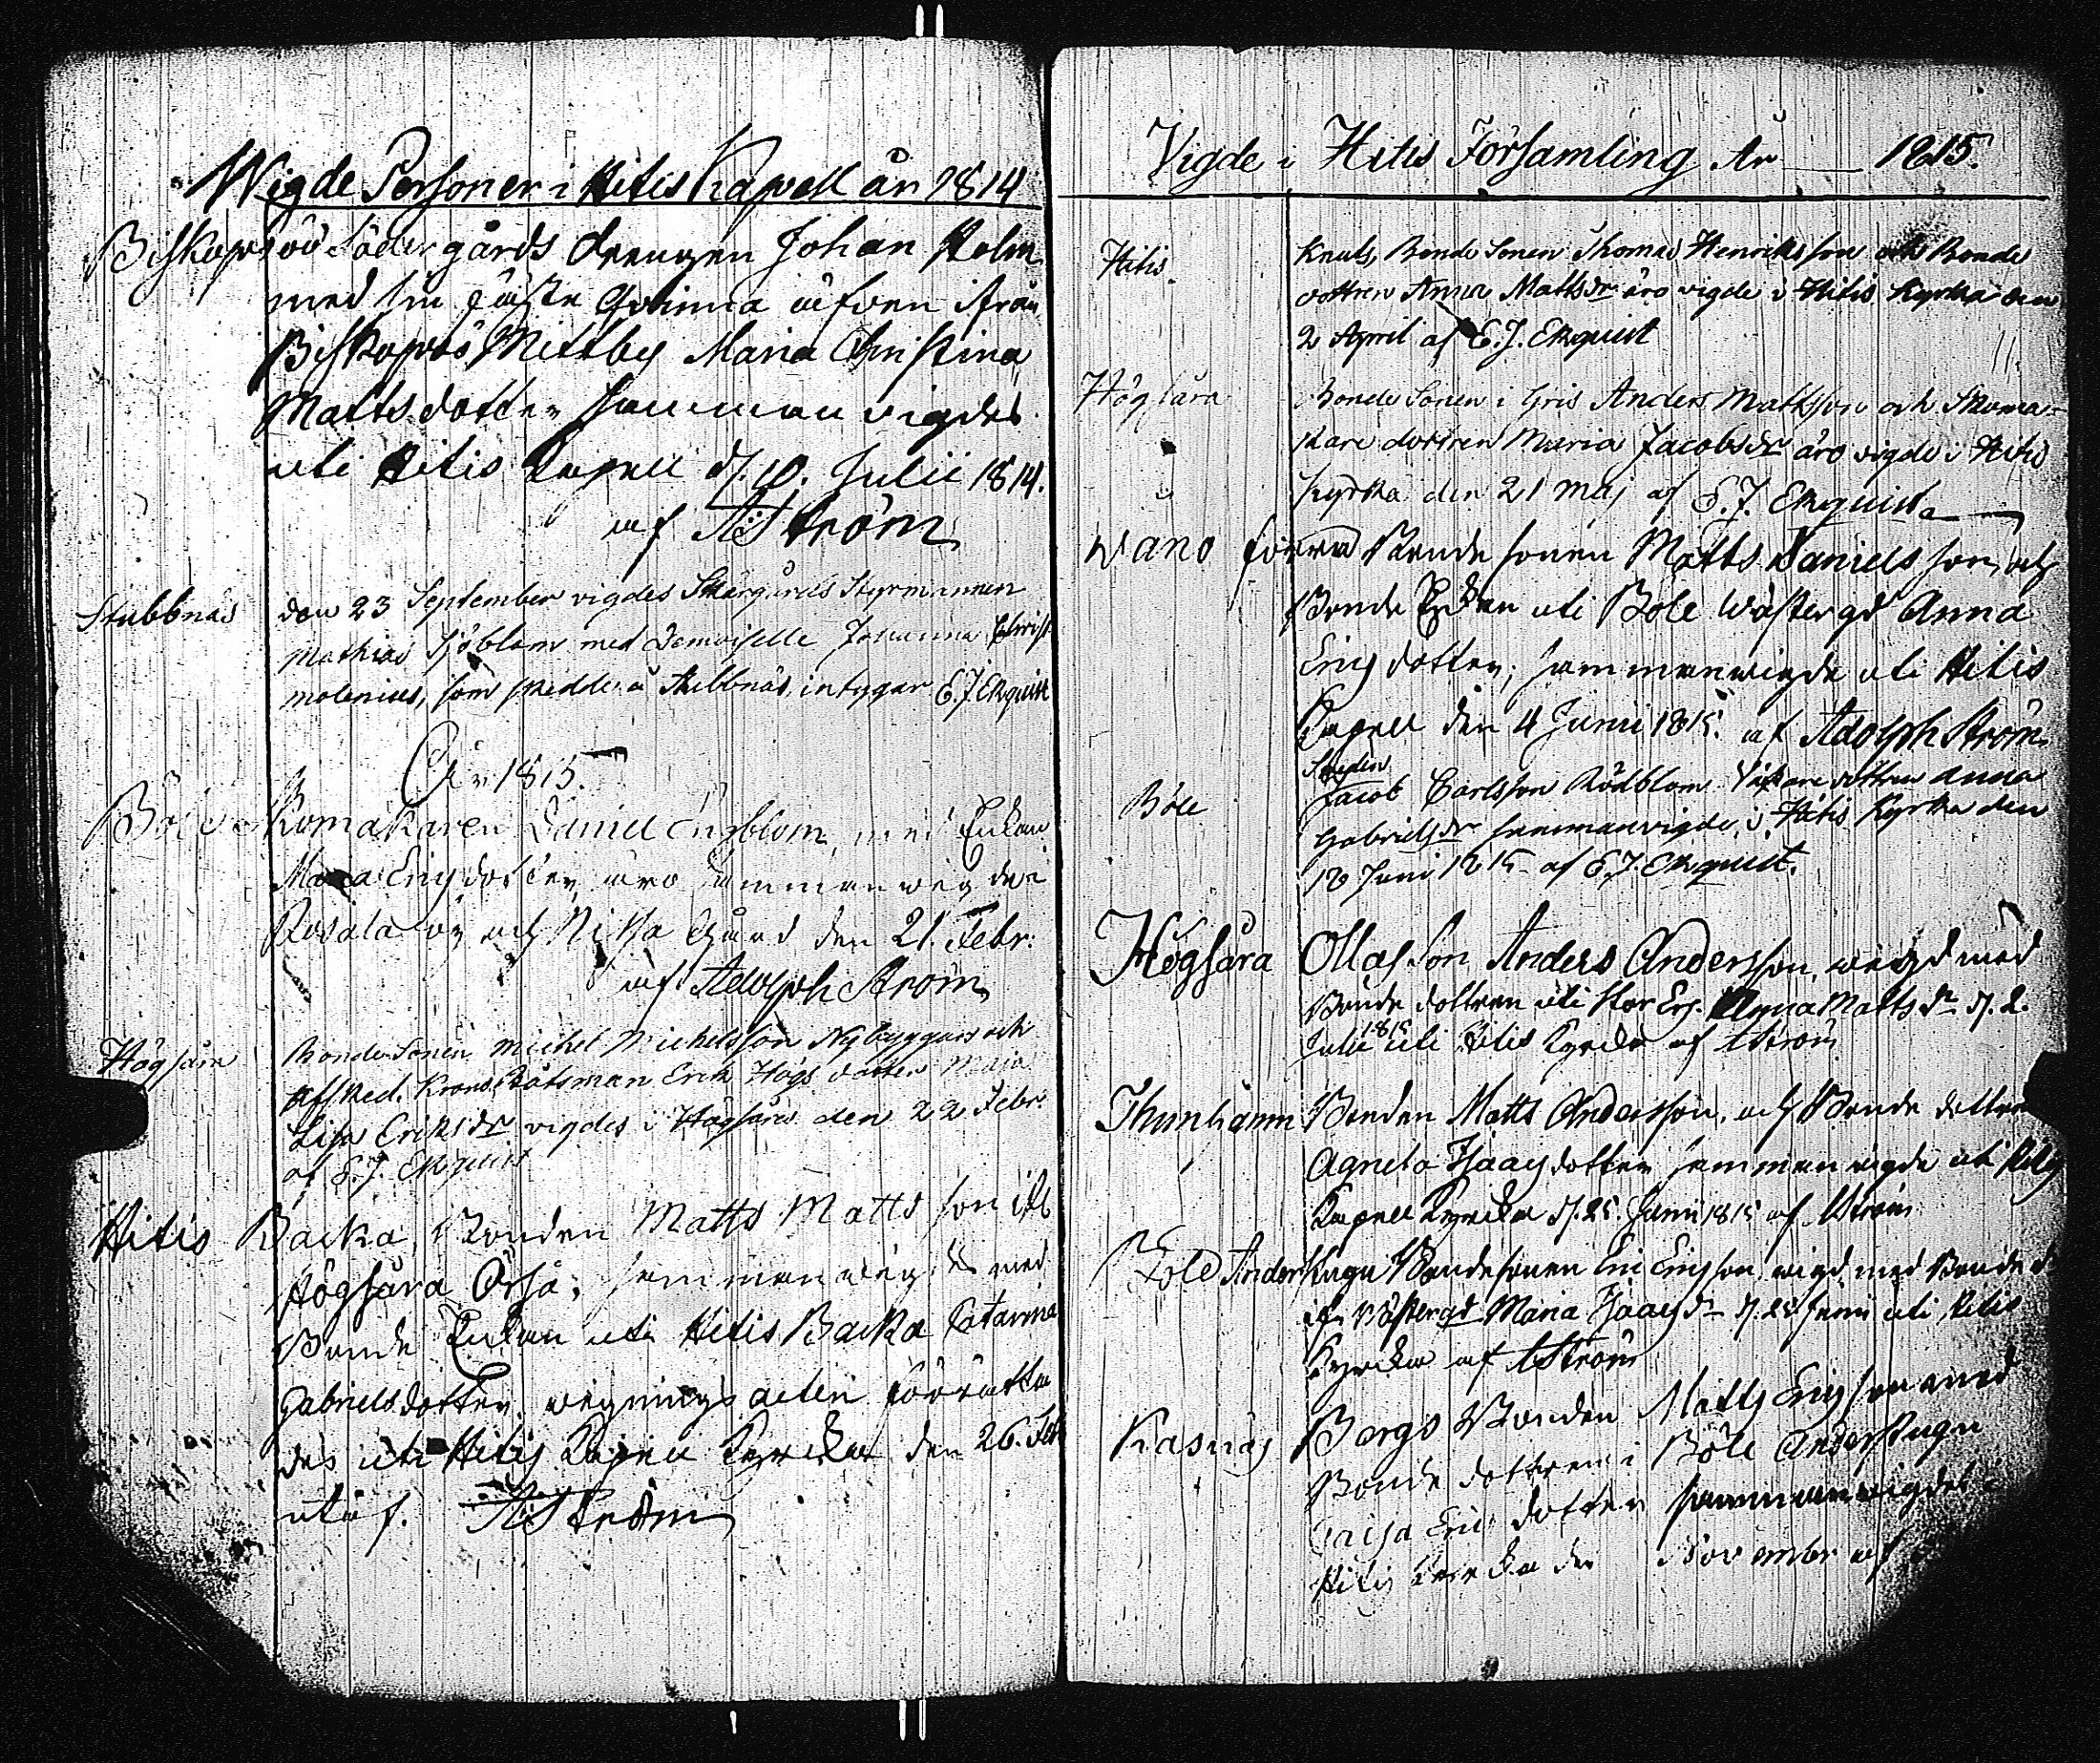 Wigde Personer i Hitis Kapell år 1814
Biskopsöö Södergårds drengen Johan Holm
med sin fäste Qvinna äfven ifrån
Biskopsö Mellby Maria Christina
Matts dotter sammanvigdes
uti Hitis Capell d. 10. Julii 1814.
af AStröm
Stubbnäs den 23 September vigdes Skärgårds Styrmannen
Mathias Sjöblom med Demoiselle Johanna Christ.
Molenius, som skedde å Stubbnäs, intygar E. J. Ekquist
År 1815.
Böle Skomakaren Daniel Engblom, med Enkan
Maria Ericsdotter äro sammanwigde
Rosala by och Nissa Gård den 21. Febr.
af Adolph Ström
Högsåra Bonde Sonen Michel Michelsson Nybyggars och
Afsked. Krono Båtsman Erik Högs dotter Maja
Lisa Eriksdr vigdes i Högsåra den 22 Febr.
af E. J. Ekquist
Hitis Backa, Bonden Matts Mattsson ifr
Högsåra Örså, sammanwigdes med
Bonde Enkan uti Hitis Backa Catarina
Gabrielsdotter, wignings acten förrätta
des uti Hitis Capell Kyrcka den 26. Feb
utaf. AStröm
Vigde i Hitis Församling År 1815.
Hitis Knuts, Bonde Sonen Thomas Henriksson och Bonde
dottren Anna Mattsdr äro vigde i Hitis Kyrka den
2 April af E. J. Ekquist
Högsåra Bonde Sonen i Gris Anders Mattsson och Skoma-
kare dottren Maria Jacobsdr äro vigde i Hitis
Kyrka den 21 Maj af E. J. Ekquist
Wano förra Bonde sonen Matts Danielsson, och
Bonde Enkan uti Böle Wästergd Anna
Ericsdotter, sammanwigde uti Hitis
Capell den 4 Junii 1815. af Adolph Ström
Böle Jacob Carlsson Rödblom dottren Anna
Gabrielsdr sammanvigde i Hitis Kyrka den
Juni 1815 af E. J. Ekquist.
Högsåra Ollas Son Anders Andersson, wigd med
Bonde dottren uti Stor Erj. Anna Mattsdr d. 2.
Julii 1815 uti Hitis Kyrcka af AStröm
Thunhamn Bonden Matts Andersson, och Bonde dottren
Agneta Isaacsdotter sammanvigde uti Hitis
Capell Kyrcka d. 25. Junii 1815 af AStröm
Böle Anderskuga Bondesonen Eric Ericsson, wigd med Bonde d
ifr Wästergd Maria Isaacsdr d. 25 Juni uti Hitis
Kyrcka af AStröm
Kasnäs Bergs Bonden Matts Ericsson med
Bonde dottren i Böle Anderskuga
Caisa Erics dotter sammanwigdes i
Hitis Kyrcka den November af